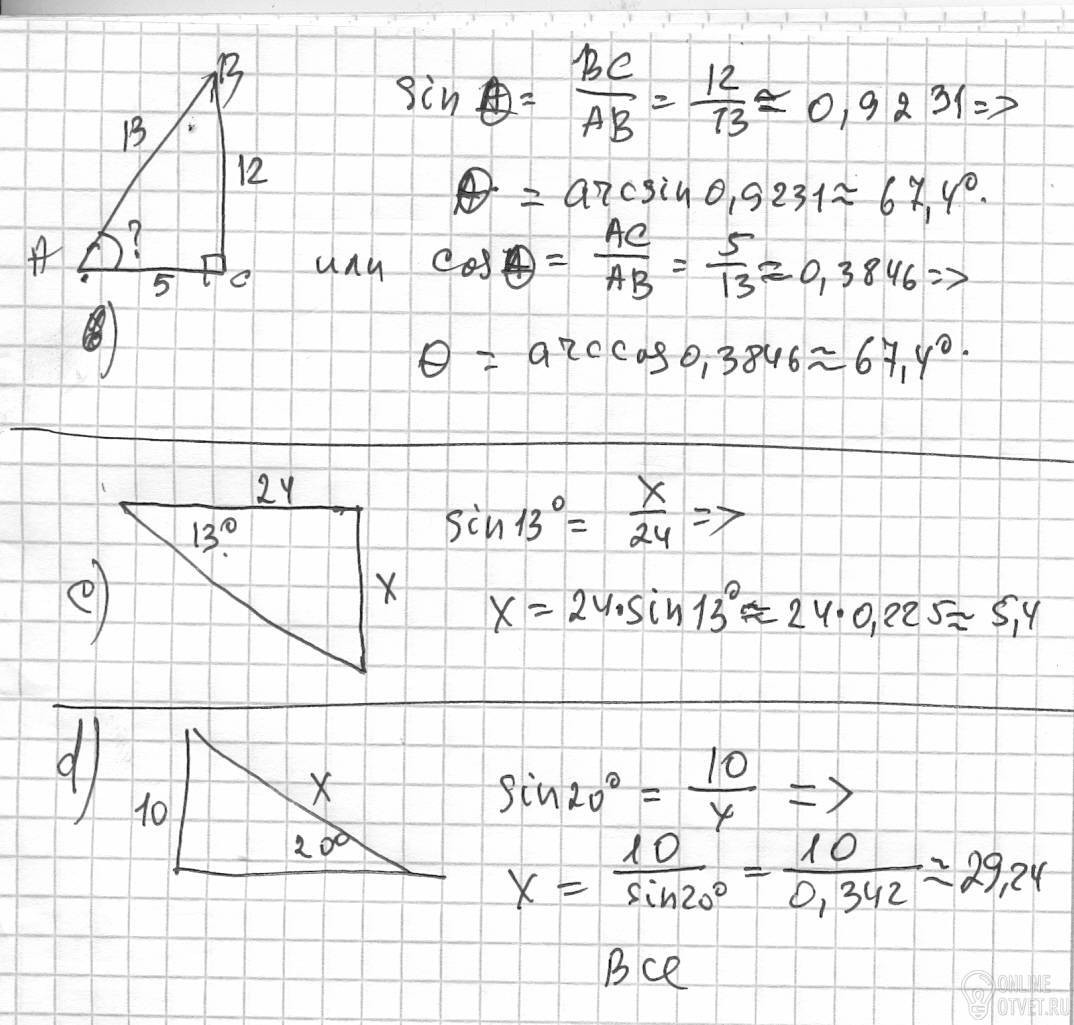 B
13
12
A
?
5
C
в)
sin θ = BC/AB = 12/13 ≈ 0,9231 =>
θ = arcsin 0,9231 ≈ 67,4°.
или cos θ = AC/AB = 5/13 ≈ 0,3846 =>
θ = arccos 0,3846 ≈ 67,4°.
c)
24
13°
x
sin 13° = x/24 =>
x = 24·sin 13° ≈ 24·0,225 ≈ 5,4
d)
10
x
20°
sin 20° = 10/x =>
x = 10/sin 20° = 10/0,342 ≈ 29,24
Все
ONLINE
OTVET.RU